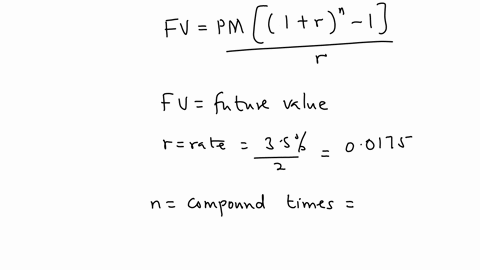 FV = PM[(1+r)^n -1] / r
FV = future value
r = rate = 3.5% / 2 = 0.0175
n = compound times =